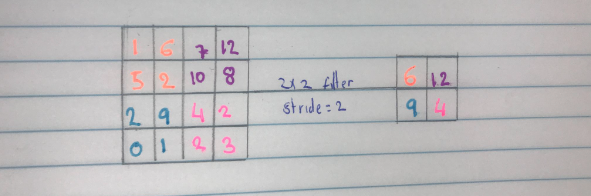 1 6 7 12
5 2 10 8
2 9 4 2
0 1 2 3
2x2 filter
stride = 2
6 12
9 4